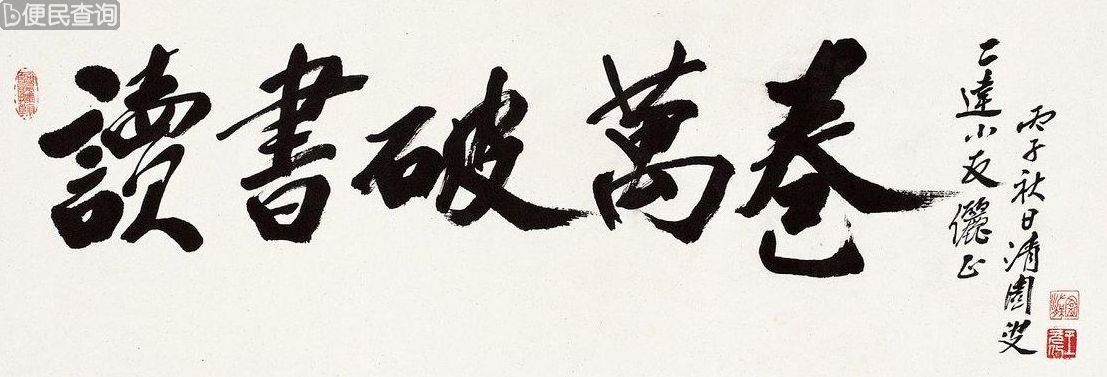 便民查询
讀書破萬卷
二達小友儷正
丙子秋日清園叟